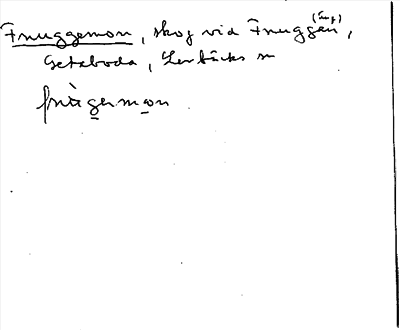 Fnuggemon, skog vid Fnuggen (sjö),
Getaboda, Lerbäcks sn
fnùgermon